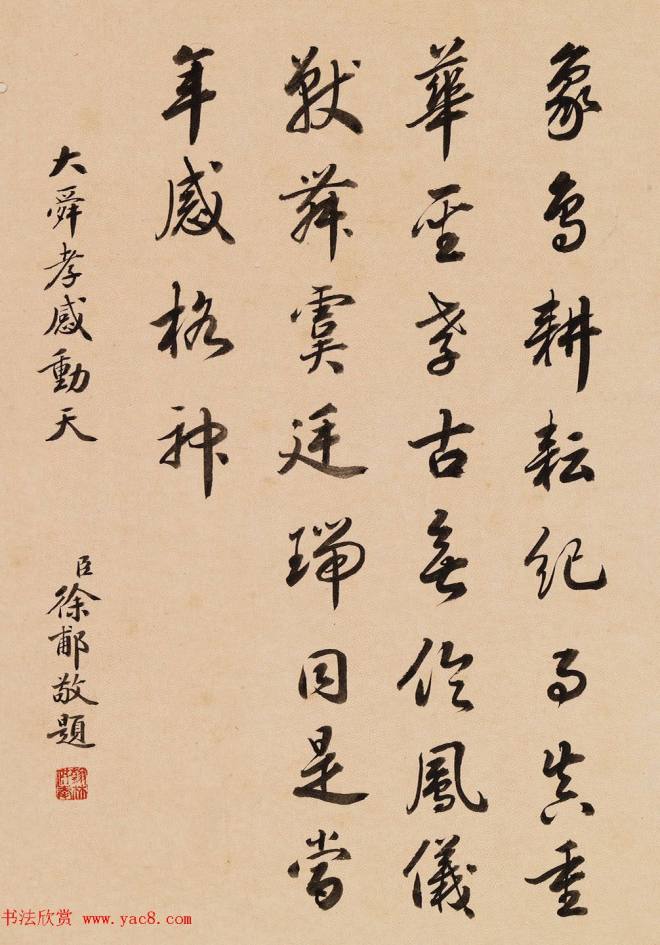 象鳥耕耘紀事真重
華至孝古無倫鳳儀
獸舞虞廷瑞同是當
年感格神
大舜孝感動天
臣徐郙敬題
书法欣赏 www.yac8.com